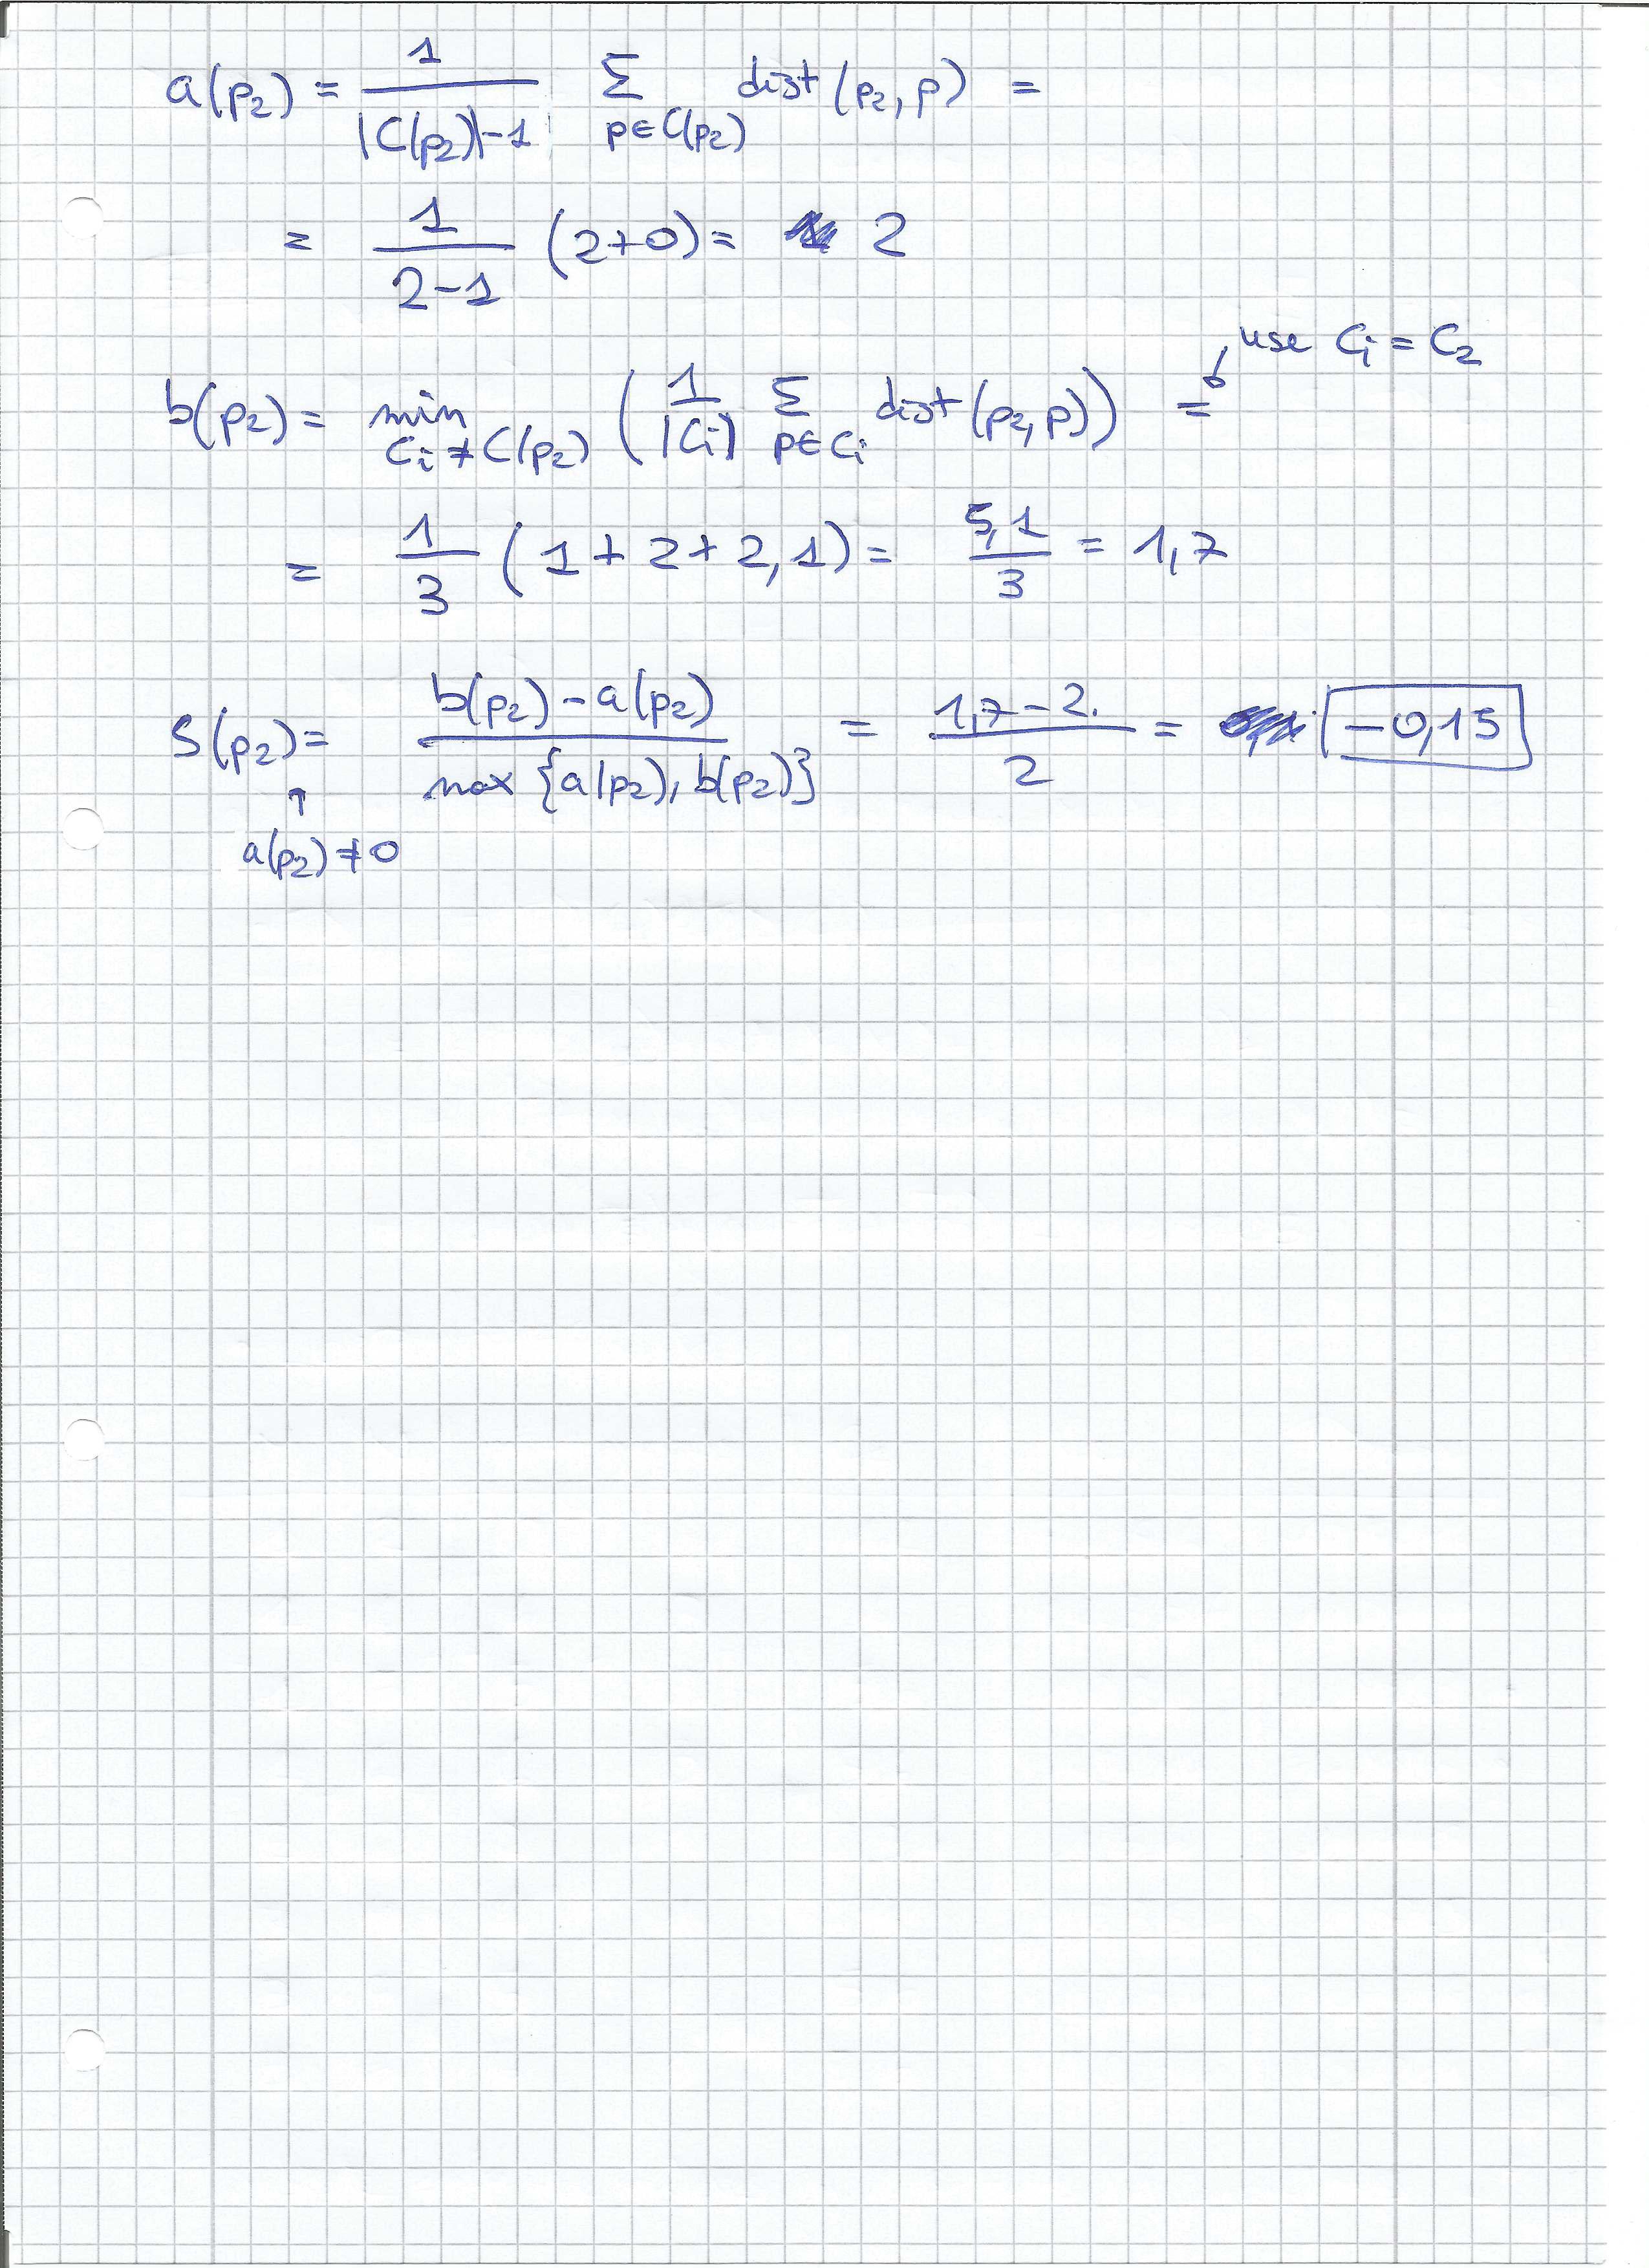 a(p₂) = 1 / (|C(p₂)|-1) Σ_{p∈C(p₂)} dist(p₂,p) =
= 1 / (2-1) (2+0) = 2
use Cᵢ = C₂
b(p₂) = min_{Cᵢ≠C(p₂)} (1/|Cᵢ| Σ_{p∈Cᵢ} dist(p₂,p)) =
= 1/3 (1+2+2,1) = 5,1/3 = 1,7
S(p₂) = (b(p₂)-a(p₂)) / max{a(p₂), b(p₂)} = (1,7-2) / 2 = -0,15
↑
a(p₂) ≠ 0